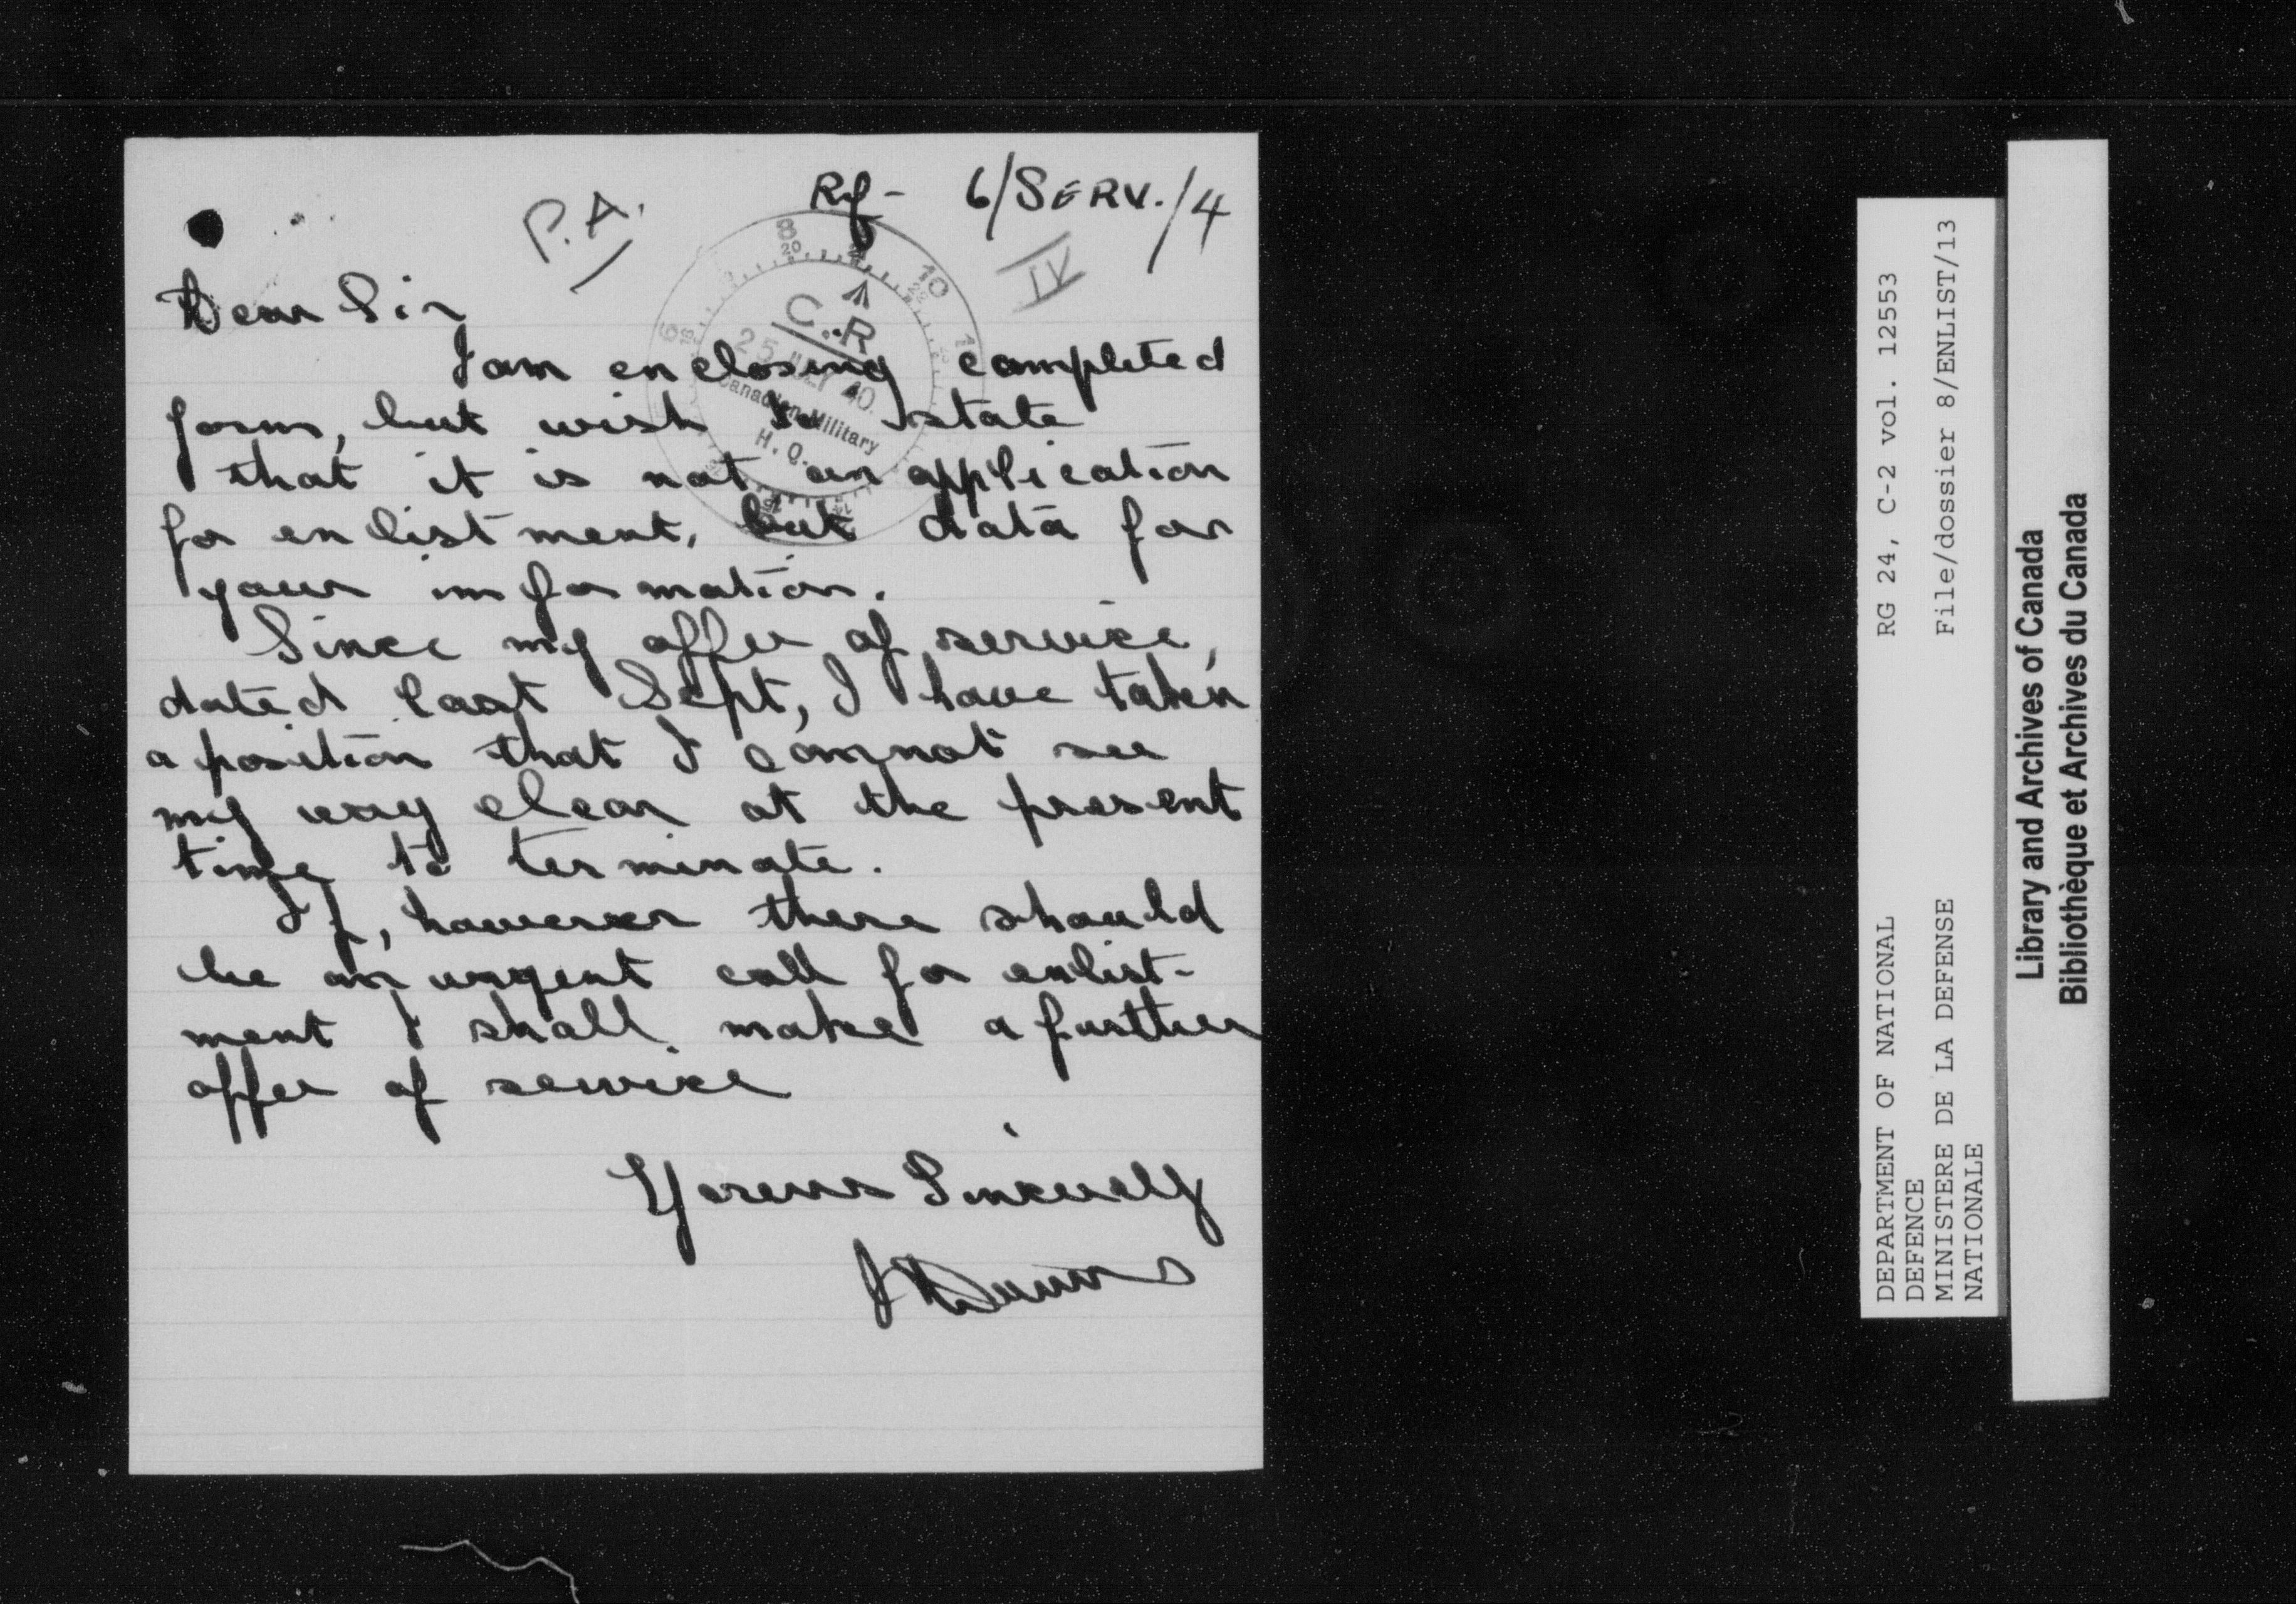 P.A.
Ref - 6/SERV./4
IV
C.R
25 JULY 40
Canadian Military
H.Q.
Dear Sir
I am enclosing completed
form, but wish to state
that it is not an application
for enlistment, but data for
your information.
Since my offer of service,
dated last Sept, I have taken
a position that I cannot see
my way clear at the present
time to terminate.
If, however there should
be an urgent call for enlist-
ment I shall make a further
offer of service
Yours Sincerely
RG 24, C-2 vol. 12553
File/dossier 8/ENLIST/13
DEPARTMENT OF NATIONAL
DEFENCE
MINISTERE DE LA DEFENSE
NATIONALE
Library and Archives of Canada
Bibliothèque et Archives du Canada